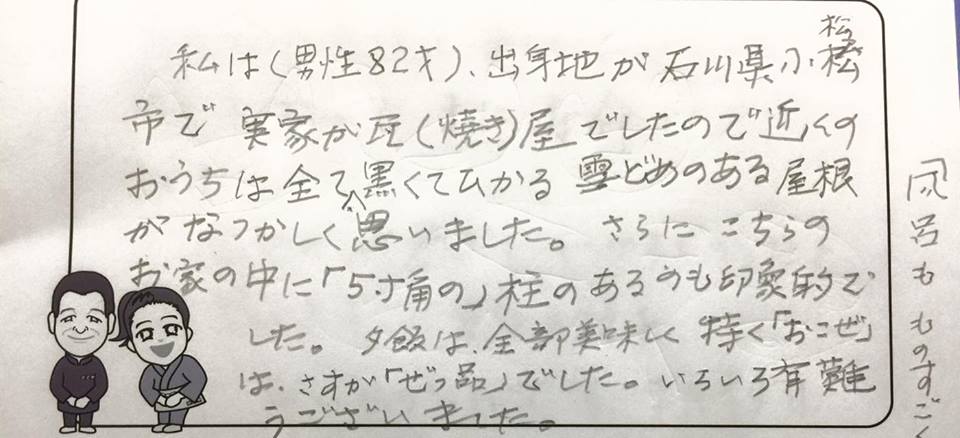 私は(男性82才)、出身地が石川県小松
市で実家が瓦(焼き)屋でしたので近くの
おうちは全て黒くてひかる雪どめのある屋根
がなつかしく思いました。さらにこちらの
お家の中に「5寸角の」柱のあるのも印象的で
した。夕飯は、全部美味しく特く「おこぜ」
は、さすが「ぜっ品」でした。いろいろ有難
うございました。
風呂もものすごく